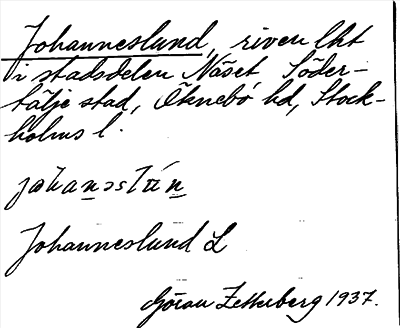 Johanneslund, riven lht
i stadsdelen Näset, Söder-
tälje stad, Öknebo hd, Stock-
holms l.
Johanneslund L
Göran Zetterberg 1937.